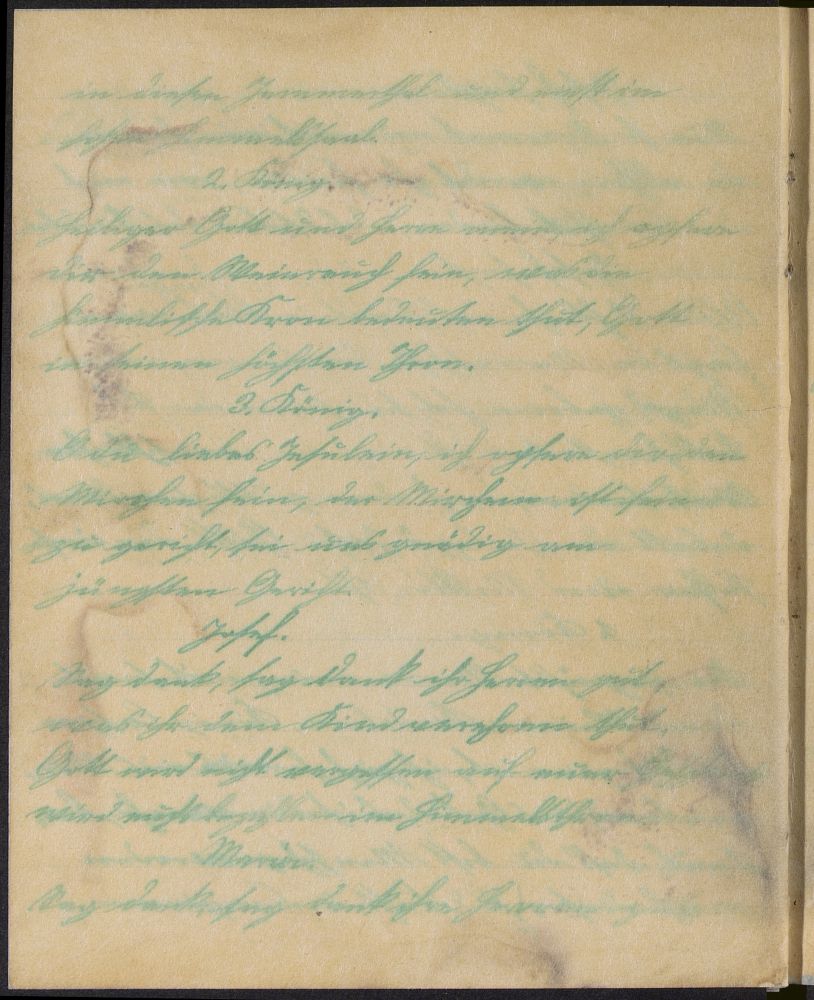 in diesen Jammerthal und auch im
hohen Himmelssaal.
2. König.
Heiliger Gott und Herre mein, ich opfere
dir den Weinrauch fein, was die
himmlische Kron bedeuten thut, Gott
in seinen höchsten Thron.
3. König.
O du liebes Jesulein, ich opfere dir den
Mirchen fein, der Mirchen ist fein
zu gericht, sei uns gnädig am
jüngsten Gericht.
Josef.
Sag dank, sag dank ihr Herren gut,
was ihr dem Kind verehren thut,
Gott wird nicht vergessen auf euer
wird euchs bezahlen im Himmelsthron
Maria.
Sag dank, sag dank ihr Herren